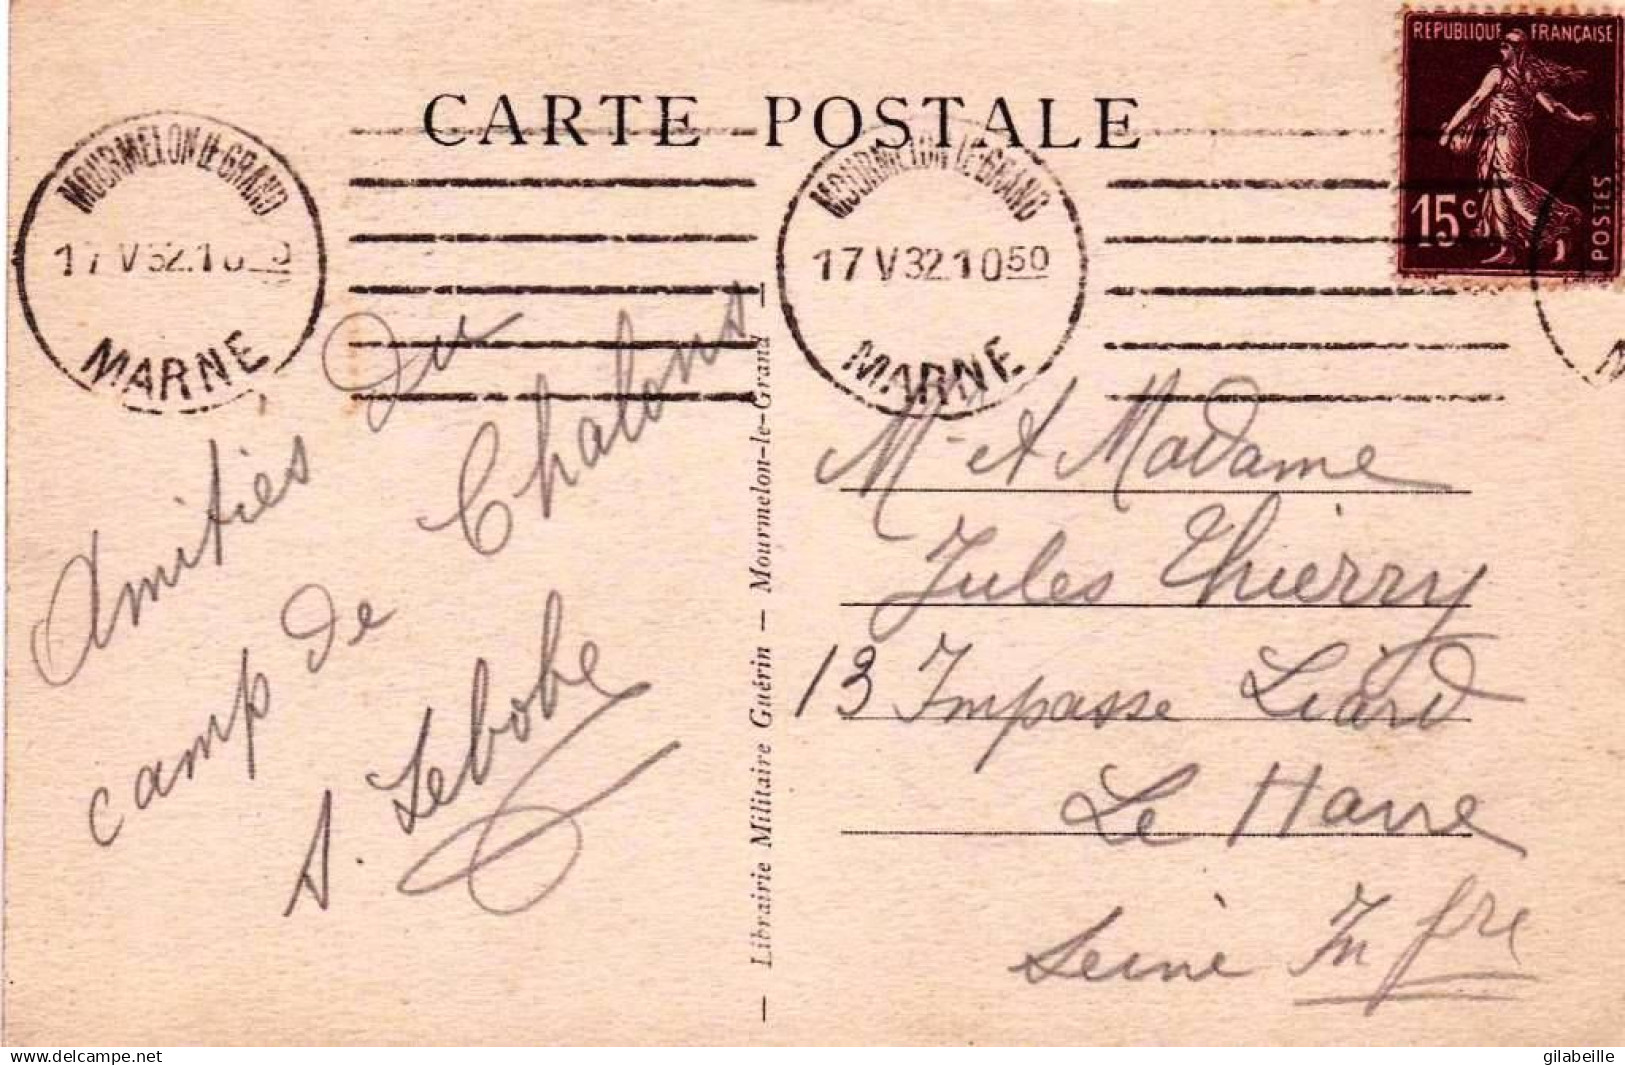 RÉPUBLIQUE FRANÇAISE
15c
POSTES
CARTE POSTALE
MOURMELON LE GRAND
17 V 32.10
MARNE
MOURMELON LE GRAND
17 V 32 10 50
MARNE
Amitiés du
camp de Chalons
A. Lebobe
Librairie Militaire Guérin — Mourmelon-le-Grand
Mr et Madame
Jules Thierry
13 Impasse Liard
Le Havre
Seine Infre
www.delcampe.net
gilabeille